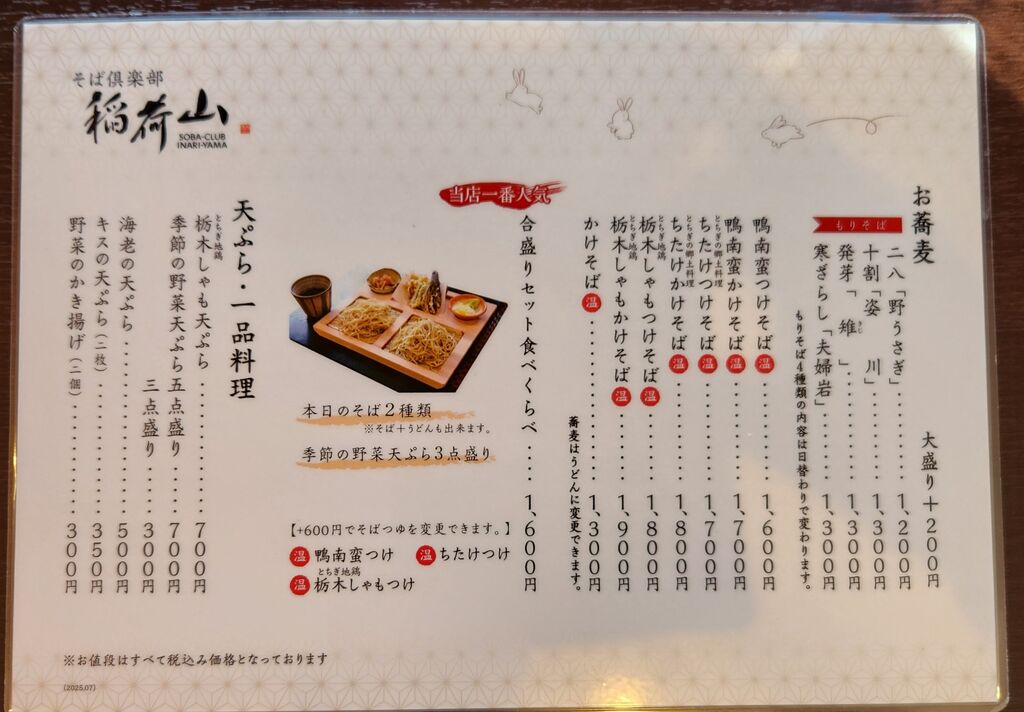 そば倶楽部
稲荷山
SOBA-CLUB
INARI-YAMA
お蕎麦
大盛り＋200円
もりそば
二八「野うさぎ」・・・・・・・・1,200円
十割「姿　川」・・・・・・・・1,300円
発芽「雉　」・・・・・・・・1,300円
きじ
寒ざらし「夫婦岩」・・・・・・・・1,300円
もりそば4種類の内容は日替わりで変わります。
鴨南蛮つけそば 温・・・・・・・・1,600円
鴨南蛮かけそば 温・・・・・・・・1,700円
とちぎの郷土料理
ちたけつけそば 温・・・・・・・・1,700円
とちぎの郷土料理
ちたけかけそば 温・・・・・・・・1,800円
とちぎ地鶏
栃木しゃもつけそば 温・・・・・・1,800円
とちぎ地鶏
栃木しゃもかけそば 温・・・・・・1,900円
かけそば 温・・・・・・・・・・1,300円
蕎麦はうどんに変更できます。
当店一番人気
合盛りセット食べくらべ・・・・1,600円
本日のそば2種類
※そば＋うどんも出来ます。
季節の野菜天ぷら3点盛り
【+600円でそばつゆを変更できます。】
温 鴨南蛮つけ　温 ちたけつけ
とちぎ地鶏
温 栃木しゃもつけ
天ぷら・一品料理
とちぎ地鶏
栃木しゃも天ぷら・・・・・・・・700円
季節の野菜天ぷら五点盛り・・・・700円
三点盛り・・・・300円
海老の天ぷら・・・・・・・・・・500円
キスの天ぷら（二枚）・・・・・・350円
野菜のかき揚げ（二個）・・・・・300円
※お値段はすべて税込み価格となっております
(2025.07)